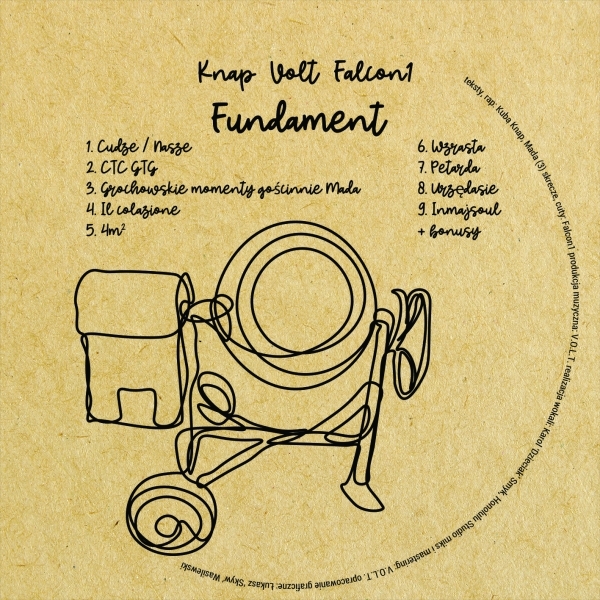 Knap Volt Falcon1
Fundament
1. Cudze / Nasze
2. CTC GTG
3. Grochowskie momenty gościnnie Mada
4. Il colazione
5. 4m²
6. Wzrasta
7. Petarda
8. Urzędasie
9. Inmajsoul
+ bonusy
teksty, rap: Kuba Knap, Mada (3) skrecze, cuty: Falcon1 produkcja muzyczna: V.O.L.T. realizacja wokali: Karol 'Dzieciak' Smyk, Honolulu Studio miks i mastering: V.O.L.T. opracowanie graficzne: Łukasz 'Skyw' Wasilewski